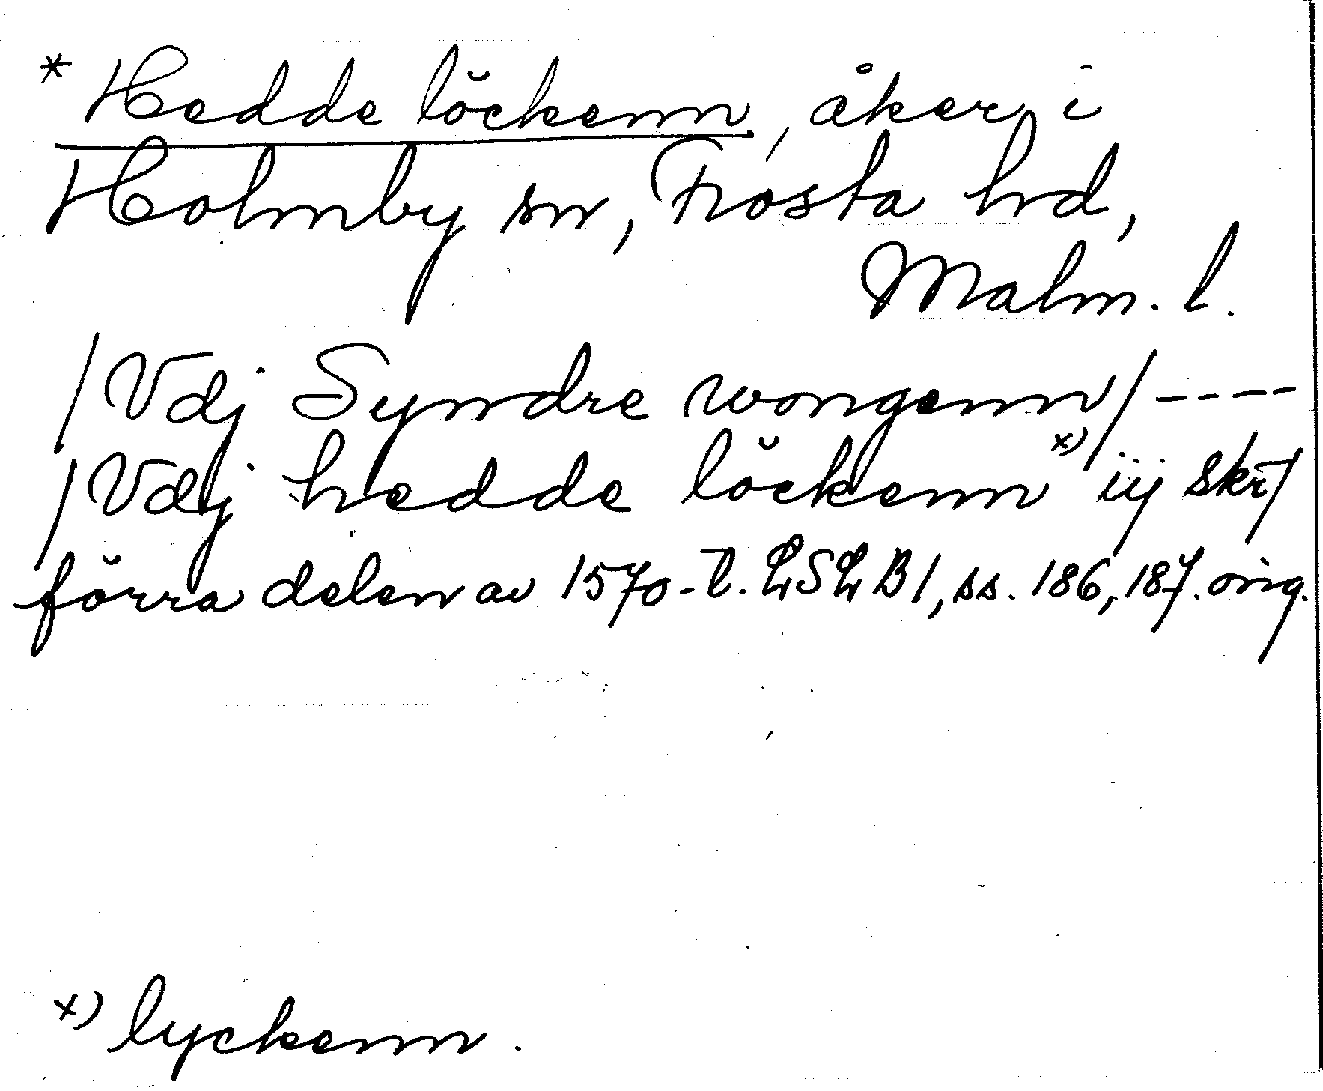 * Hedde löckenn, åker i
Holmby sn, Frosta hd,
Malm. l.
/Vdj Syndre wongenn/ ----
/Vdj hedde löckenn x) iij skr/
förra delen av 1570-t. LSLB1, ss. 186, 187. orig.
x) lyckenn.